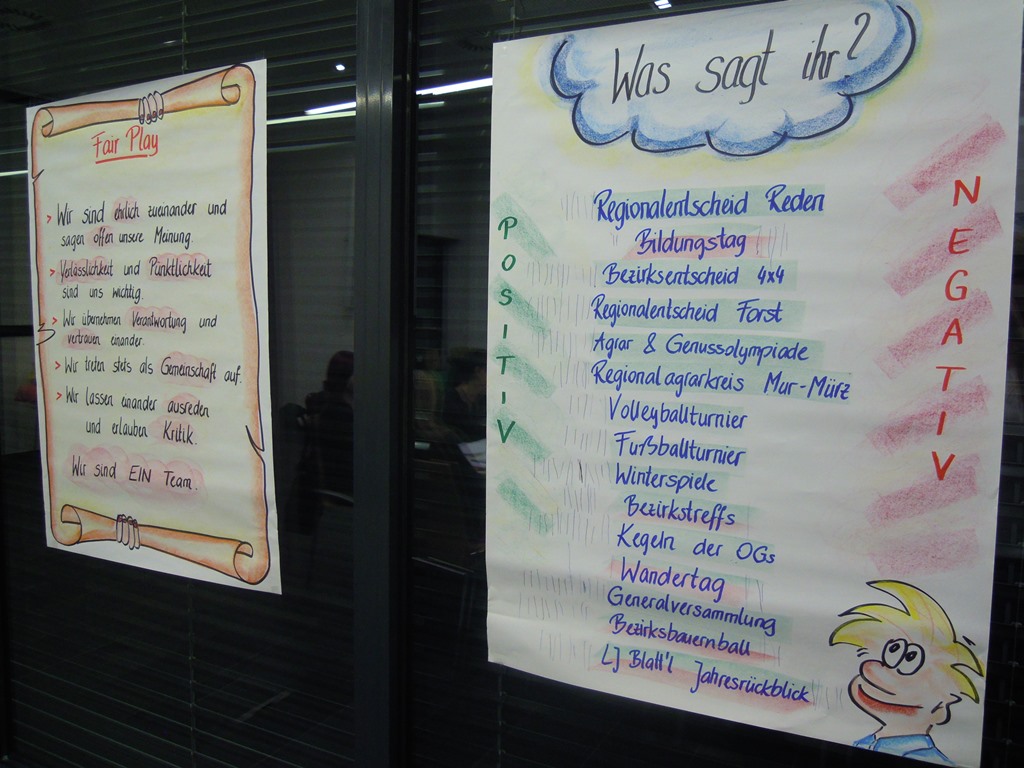 Fair Play
> Wir sind ehrlich zueinander und
sagen offen unsere Meinung.
> Verlässlichkeit und Pünktlichkeit
sind uns wichtig.
> Wir übernehmen Verantwortung und
vertrauen einander.
> Wir treten stets als Gemeinschaft auf.
> Wir lassen einander ausreden
und erlauben Kritik.
Wir sind EIN Team.
Was sagt ihr?
POSITIV
Regionalentscheid Reden
Bildungstag
Bezirksentscheid 4x4
Regionalentscheid Forst
Agrar & Genussolympiade
Regionalagrarkreis Mur-Mürz
Volleyballturnier
Fußballturnier
Winterspiele
Bezirkstreffs
Kegeln der OGs
Wandertag
Generalversammlung
Bezirksbauernball
LJ Blatt'l Jahresrückblick
NEGATIV